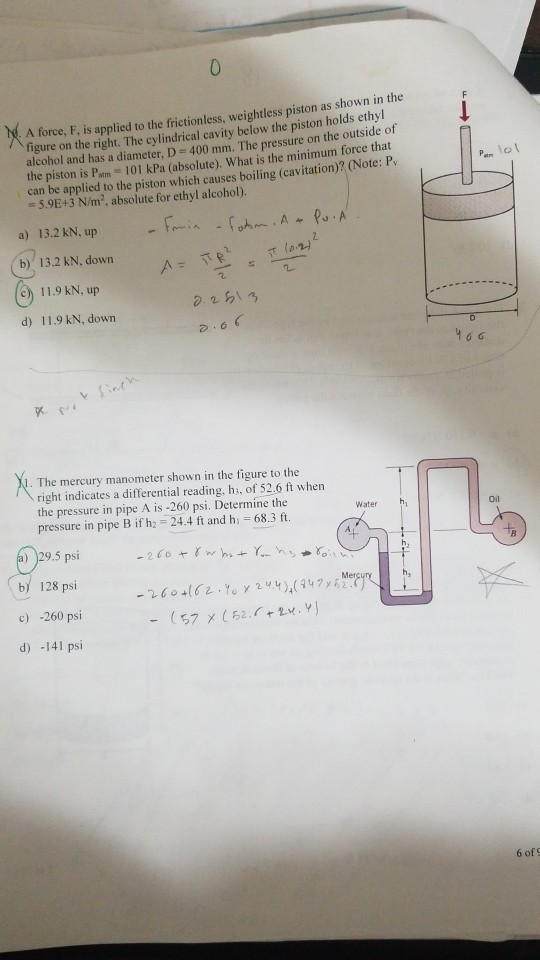 0
10. A force, F, is applied to the frictionless, weightless piston as shown in the
figure on the right. The cylindrical cavity below the piston holds ethyl
alcohol and has a diameter, D = 400 mm. The pressure on the outside of
the piston is Patm = 101 kPa (absolute). What is the minimum force that
can be applied to the piston which causes boiling (cavitation)? (Note: Pv
= 5.9E+3 N/m², absolute for ethyl alcohol).
F
Patm 101
a) 13.2 kN, up
b) 13.2 kN, down
c) 11.9 kN, up
d) 11.9 kN, down
- Fmin - Patm . A + Pv . A
A = πR²/2 = π(0.2)²/2
0.2513
0.06
D
400
11. The mercury manometer shown in the figure to the
right indicates a differential reading, h₃, of 52.6 ft when
the pressure in pipe A is -260 psi. Determine the
pressure in pipe B if h₂ = 24.4 ft and h₁ = 68.3 ft.
a) 29.5 psi
b) 128 psi
c) -260 psi
d) -141 psi
-260 + γw h₂ + γm h₃ - γoil h₁
-260+(62.40 x 24.4)+(847x52.6)
- (57 x (52.6+24.4)
Water
h₁
Oil
A
B
h₂
Mercury
h₃
6 of 9